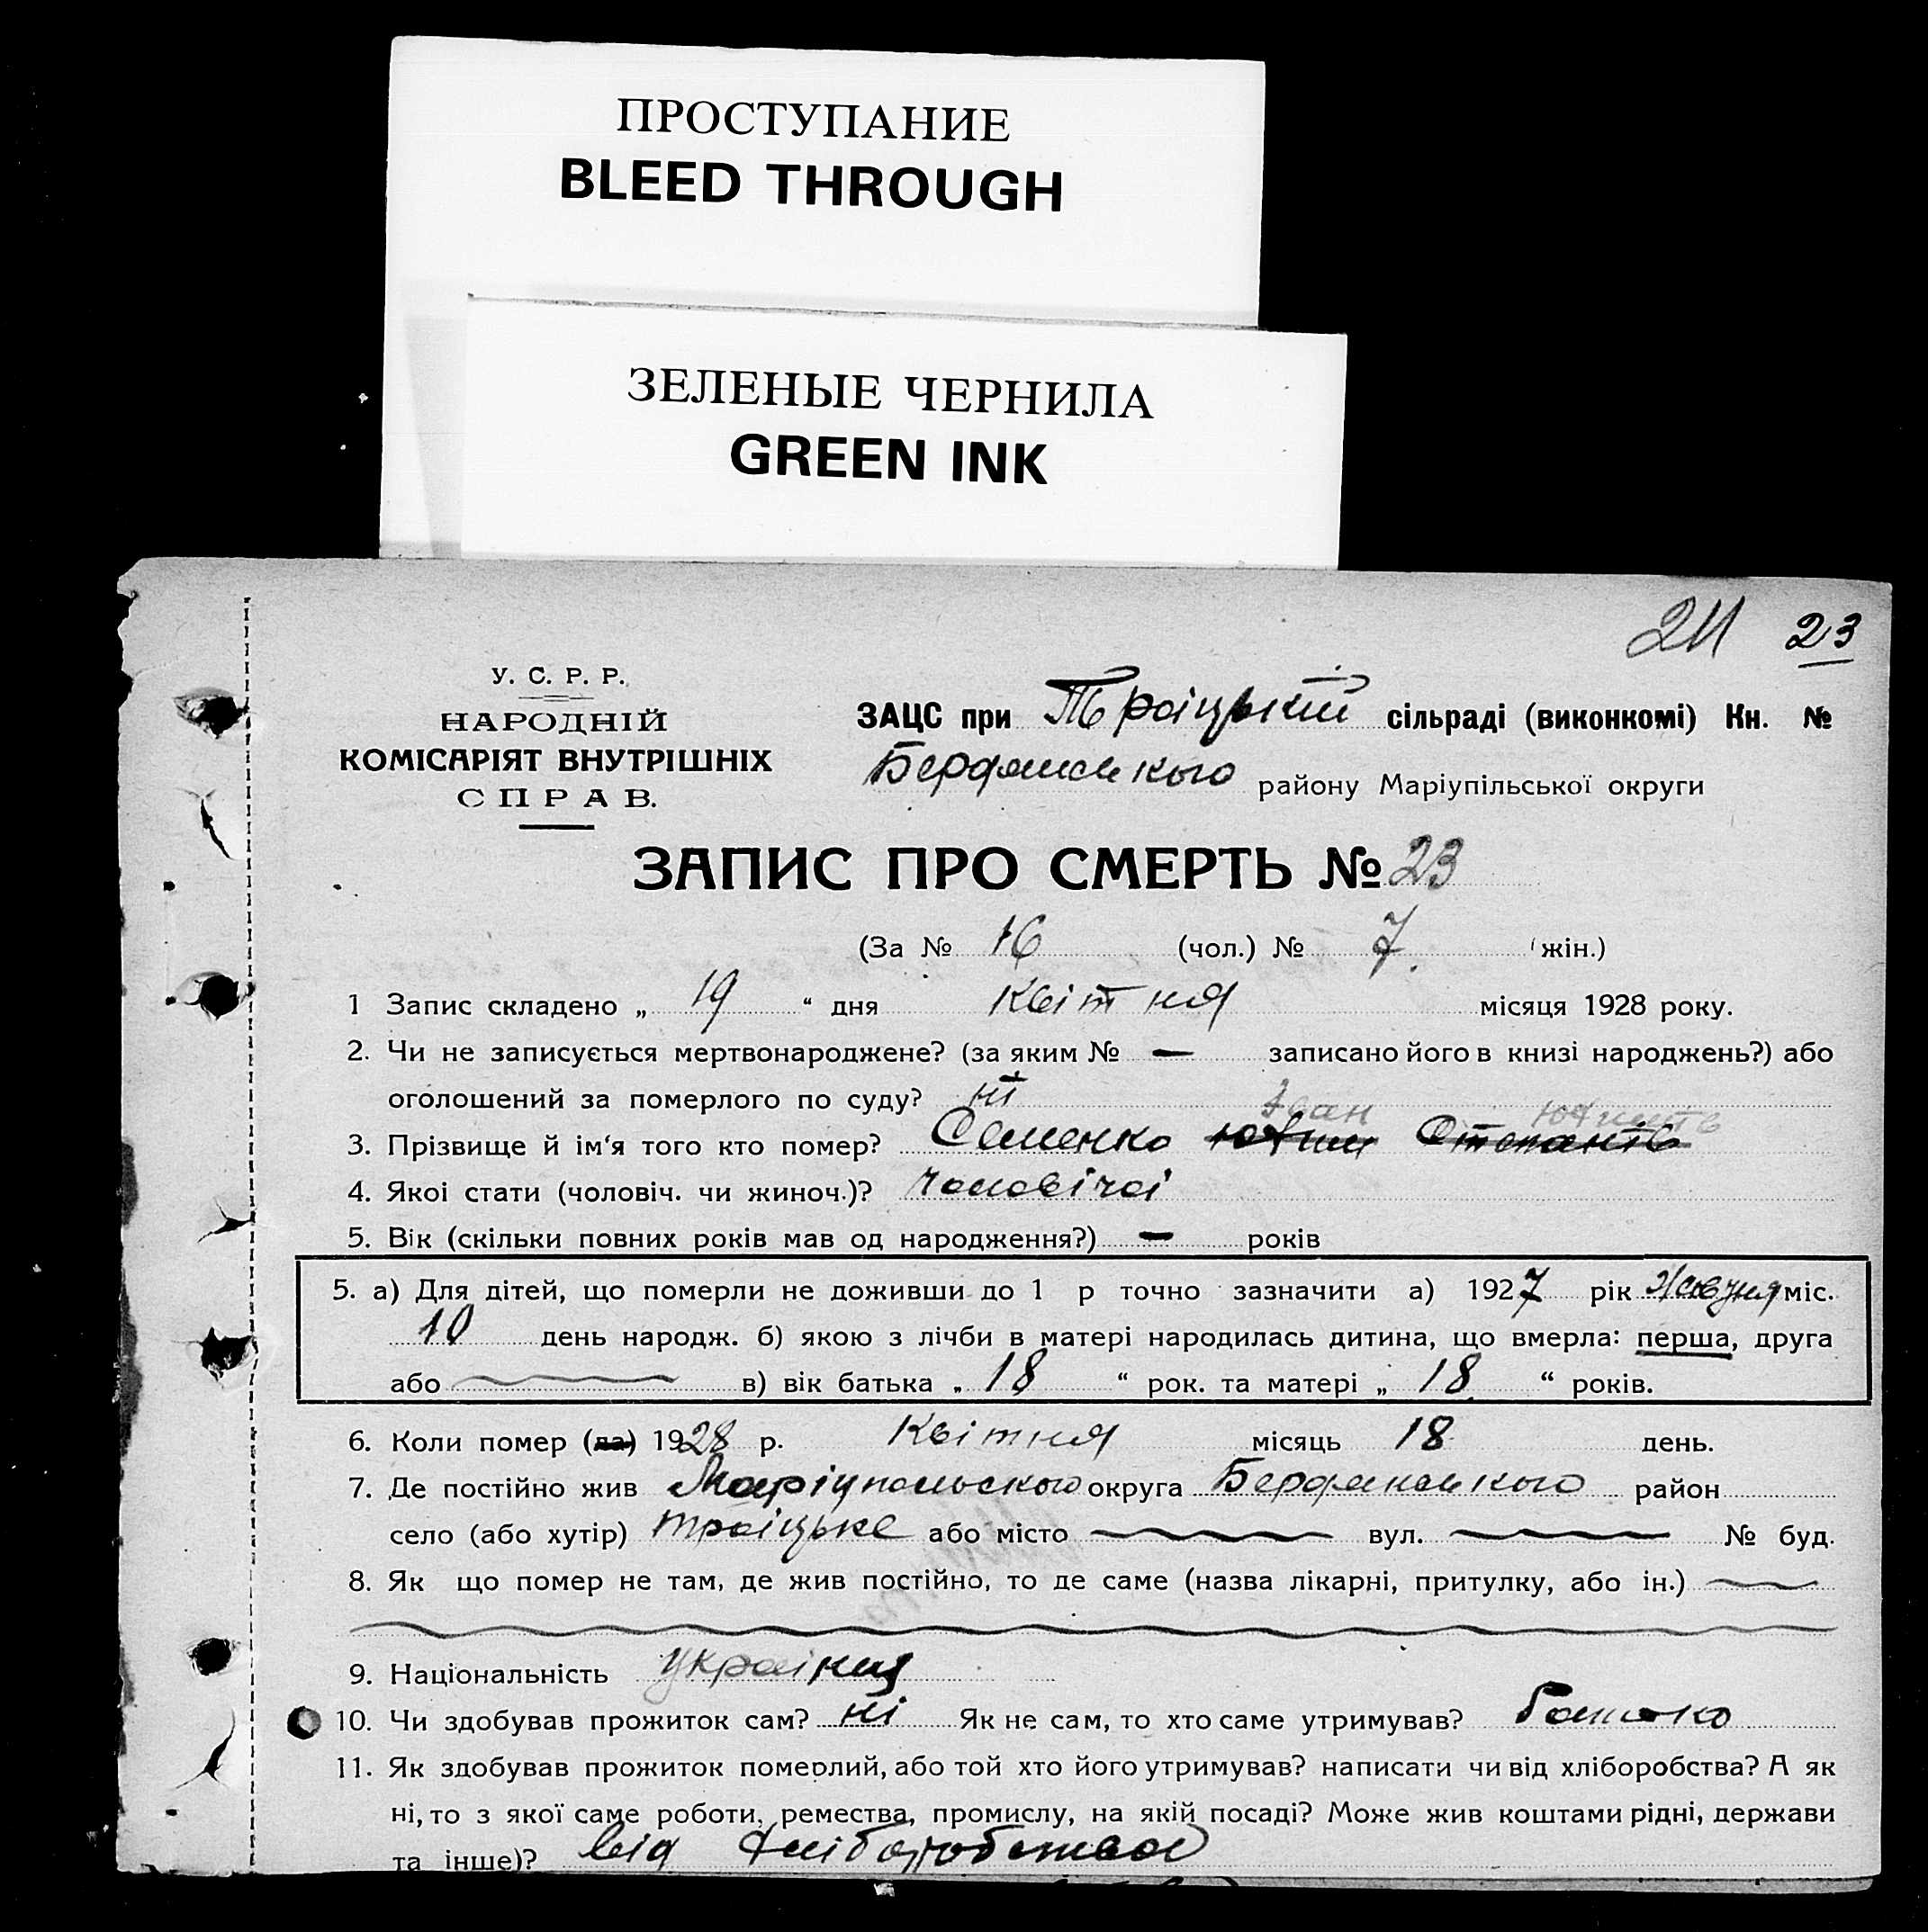 ПРОСТУПАНИЕ
BLEED THROUGH
ЗЕЛЕНЫЕ ЧЕРНИЛА
GREEN INK
24 23
У. С. Р. Р.
НАРОДНІЙ
КОМІСАРІЯТ ВНУТРІШНІХ
СПРАВ.
ЗАЦС при Троїцькій сільраді (виконкомі) Кн. №
Бердянського району Маріупільської округи
ЗАПИС ПРО СМЕРТЬ № 23
(За № 16 (чол.) № 7. жін.)
1 Запис складено „ 19 “ дня Квітня місяця 1928 року.
2. Чи не записується мертвонароджене? (за яким № — записано його в книзі народжень?) або
оголошений за померлого по суду? ні
Іван
3. Прізвище й ім‘я того кто помер? Семенко
4. Якоі стати (чоловіч. чи жиноч.)? Чоловічої
5. Вік (скільки повних років мав од народження?) — років
5. а) Для дітей, що померли не доживши до 1 р точно зазначити а) 1927 рік Жовтня міс.
10 день народж. б) якою з лічби в матері народилась дитина, що вмерла: перша, друга
або в) вік батька „ 18 “ рок. та матері „ 18 “ років.
6. Коли помер (ла) 1928 р. Квітня місяць 18 день.
7. Де постійно жив Маріупольського округа Бердянського район
село (або хутір) Троїцьке або місто вул. № буд.
8. Як що помер не там, де жив постійно, то де саме (назва лікарні, притулку, або ін.)
9. Національність
10. Чи здобував прожиток сам? ні Як не сам, то хто саме утримував? Батько
11. Як здобував прожиток померлий, або той хто його утримував? написати чи від хліборобства? А як
ні, то з якої саме роботи, ремества, промислу, на якій посаді? Може жив коштами рідні, держави
та інше)? від хліборобства